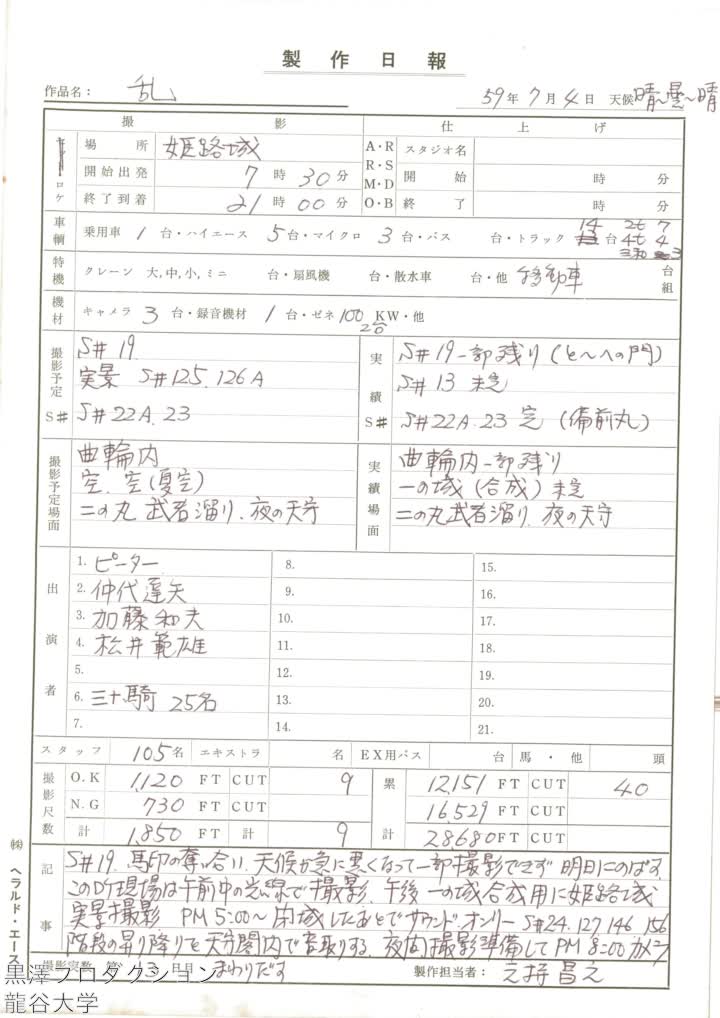 製作日報
作品名： 乱 59年 7月 4日 天候 晴〜曇〜晴
撮影 仕上げ
ロケ 場所 姫路城 A・R R・S M・D O・B スタジオ名
開始出発 7時 30分 開始 時 分
終了到着 21時 00分 終了 時 分
車輌 乗用車 1台・ハイエース 5台・マイクロ 3台・バス 台・トラック 14台 2t 7 4t 4 3
特機 クレーン 大,中,小,ミニ 台・扇風機 台・散水車 台・他 移動車 台組
機材 キャメラ 3台・録音機材 1台・ゼネ 100KW・他
2台
撮影予定 S# S#19 実績 S# S#19一部残り(と〜への門)
実景 S#125.126A S#13 未定
S#22A.23 S#22A.23 定 (備前丸)
撮影予定場面 曲輪内 実績場面 曲輪内一部残り
空、空(夏空) 一の城(合成)未定
二の丸 武者溜り.夜の天守 二の丸武者溜り.夜の天守
出演者 1. ピーター 8. 15.
2. 仲代達矢 9. 16.
3. 加藤和夫 10. 17.
4. 松井範雄 11. 18.
5. 12. 19.
6. 三十騎 25名 13. 20.
7. 14. 21.
スタッフ 105名 エキストラ 名 EX用バス 台 馬・他 頭
撮影尺数 O.K 1,120 FT CUT 9 累計 12,151 FT CUT 40
N.G 730 FT 16,529 FT
計 1,850 FT 計 9 28680 FT CUT
記事 S#19.馬印の奪い合い.天候が急に悪くなって一部撮影できず明日にのばす
この 現場は午前中の光線で撮影.午後一の城合成用に姫路城
実景撮影 PM5:00〜閉城したあとでサウンドオンリー S#24.127.146.156
階段の昇り降りを天守閣内で音取りする.夜間撮影準備してPM8:00カメラ
撮影実数 第 13日目 まわりだす 製作担当者：
㈱ヘラルド・エース
黒澤プロダクション
龍谷大学